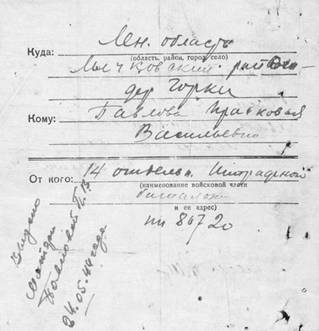 Куда: Лен. область
(область, район, город, село)
Лычковский район
дер Горки
Кому: Павлова Прасковья
Васильевна
От кого: 14 отдельн. Штрафной
(наименование войсковой части
и ее адрес)
пп 86720
Выдано
матери
Павловой П.В.
24.05.44 года